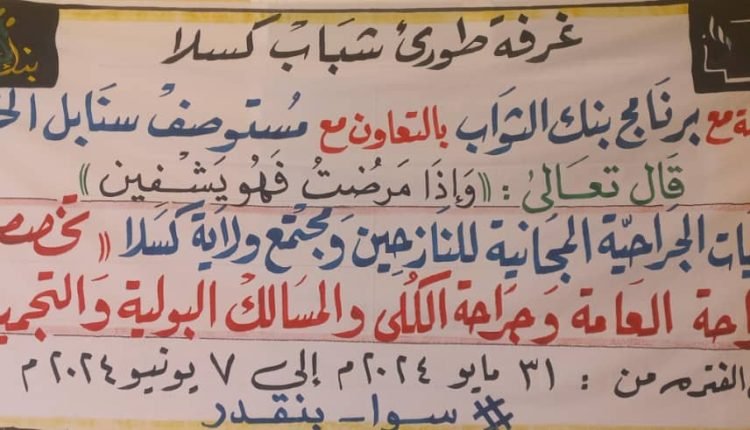 غرفة طورئ شباب كسلا
بنك
مع برنامج بنك الثواب بالتعاون مع مستوصف سنابل
قَال تعَالىٰ : «وَإِذَا مَرُضتُ فَهُو يَشْفين»
الجراحيّة المجانية للنازحين وَمجتمع ولاية كَسَلا «
العامة وَجراحة الكلى والمسالك البولية وَالتجمي
الفتره من : ٣١ مايو ٢٠٢٤م إلى ٧ يونيو ٢٠٢٤م
#سوا_بنقدر